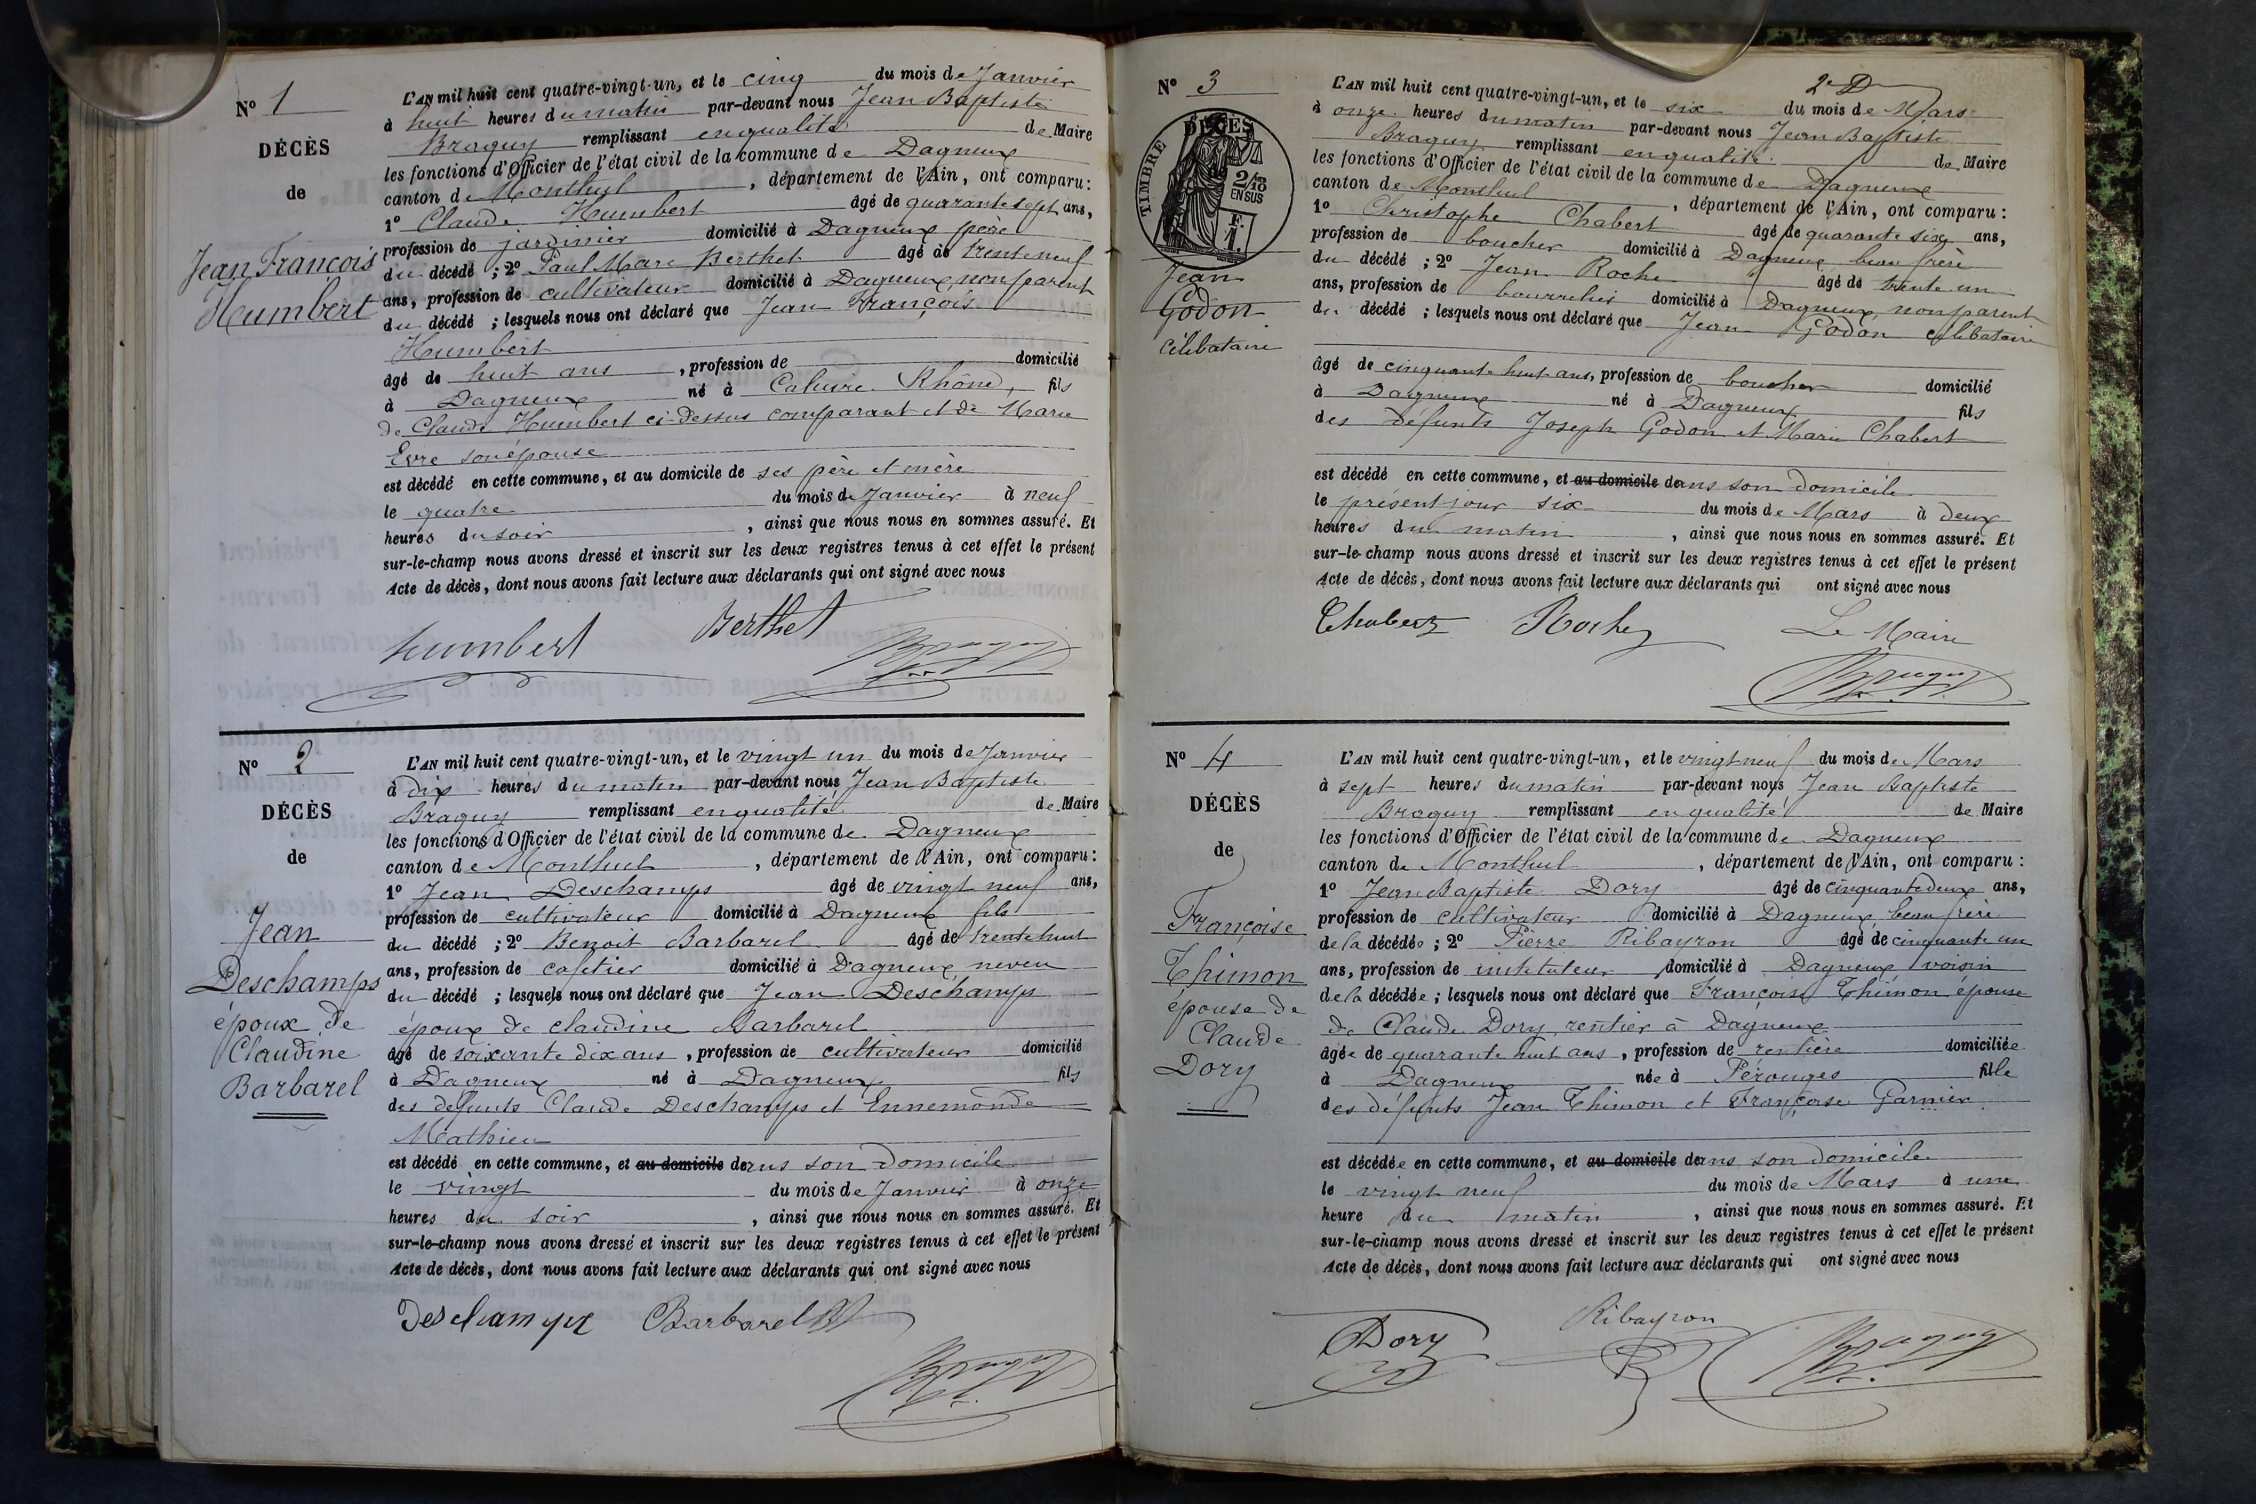 N° 1
DÉCÈS
de
Jean François
Humbert
L'AN mil huit cent quatre-vingt-un, et le cinq du mois de Janvier
à huit heures du matin par-devant nous Jean Baptiste
Braguy remplissant en qualité de Maire
les fonctions d'Officier de l'état civil de la commune de Dagneux
canton de Montluel, département de l'Ain, ont comparu :
1° Claude Humbert âgé de quarante sept ans,
profession de jardinier domicilié à Dagneux père
du décédé ; 2° Paul Marc Berthet âgé de trente neuf
ans, profession de cultivateur domicilié à Dagneux, non parent
du décédé ; lesquels nous ont déclaré que Jean François
Humbert
âgé de huit ans, profession de domicilié
à Dagneux né à Caluire Rhône, fils
de Claude Humbert ci-dessus comparant et de Marie
Evre son épouse
est décédé en cette commune, et au domicile de ses père et mère
le quatre du mois de Janvier à neuf
heures du soir, ainsi que nous nous en sommes assuré. Et
sur-le-champ nous avons dressé et inscrit sur les deux registres tenus à cet effet le présent
Acte de décès, dont nous avons fait lecture aux déclarants qui ont signé avec nous
humbert Berthet Braguy
N° 2
DÉCÈS
de
Jean
Deschamps
époux de
Claudine
Barbarel
L'AN mil huit cent quatre-vingt-un, et le vingt un du mois de Janvier
à dix heures du matin par-devant nous Jean Baptiste
Braguy remplissant en qualité de Maire
les fonctions d'Officier de l'état civil de la commune de Dagneux
canton de Montluel, département de l'Ain, ont comparu :
1° Jean Deschamps âgé de vingt neuf ans,
profession de cultivateur domicilié à Dagneux fils
du décédé ; 2° Benoit Barbarel âgé de trente huit
ans, profession de cafetier domicilié à Dagneux, neveu
du décédé ; lesquels nous ont déclaré que Jean Deschamps
époux de claudine Barbarel
âgé de soixante dix ans, profession de cultivateur domicilié
à Dagneux né à Dagneux fils
des défunts Claude Deschamps et Ennemonde
Mathieu
est décédé en cette commune, et au domicile dans son domicile
le vingt du mois de Janvier à onze
heures du soir, ainsi que nous nous en sommes assuré. Et
sur-le-champ nous avons dressé et inscrit sur les deux registres tenus à cet effet le présent
Acte de décès, dont nous avons fait lecture aux déclarants qui ont signé avec nous
Deschamps Barbarel Braguy
N° 3
TIMBRE
DÉCÈS
de
2/10
EN SUS
F.
1.
Jean
Godon
célibataire
2e D
L'AN mil huit cent quatre-vingt-un, et le six du mois de Mars
à onze heures du matin par-devant nous Jean Baptiste
Braguy remplissant en qualité de Maire
les fonctions d'Officier de l'état civil de la commune de Dagneux
canton de Montluel, département de l'Ain, ont comparu :
1° Christophe Chabert âgé de quarante six ans,
profession de boucher domicilié à Dagneux beau frère
du décédé ; 2° Jean Roche âgé de trente un
ans, profession de bourrelier domicilié à Dagneux, non parent
du décédé ; lesquels nous ont déclaré que Jean Godon célibataire
âgé de cinquante huit ans, profession de boucher domicilié
à Dagneux né à Dagneux fils
des défunts Joseph Godon et Marie Chabert
est décédé en cette commune, et au domicile dans son domicile
le présent jour six du mois de Mars à deux
heures du matin, ainsi que nous nous en sommes assuré. Et
sur-le-champ nous avons dressé et inscrit sur les deux registres tenus à cet effet le présent
Acte de décès, dont nous avons fait lecture aux déclarants qui ont signé avec nous
Chabert Roche Le Maire
Braguy
N° 4
DÉCÈS
de
Françoise
Thimon
épouse de
Claude
Dory
L'AN mil huit cent quatre-vingt-un, et le vingt neuf du mois de Mars
à sept heures du matin par-devant nous Jean Baptiste
Braguy remplissant en qualité de Maire
les fonctions d'Officier de l'état civil de la commune de Dagneux
canton de Montluel, département de l'Ain, ont comparu :
1° Jean Baptiste Dory âgé de cinquante deux ans,
profession de cultivateur domicilié à Dagneux, beau frère
de la décédée ; 2° Pierre Ribayron âgé de cinquante un
ans, profession de instituteur domicilié à Dagneux voisin
de la décédée ; lesquels nous ont déclaré que Françoise Thimon, épouse
de Claude Dory, rentier à Dagneux
âgée de quarante huit ans, profession de rentière domiciliée
à Dagneux née à Pérouges fille
des défunts Jean Thimon et Françoise Garnier
est décédée en cette commune, et au domicile dans son domicile
le vingt neuf du mois de Mars à une
heure du matin, ainsi que nous nous en sommes assuré. Et
sur-le-champ nous avons dressé et inscrit sur les deux registres tenus à cet effet le présent
Acte de décès, dont nous avons fait lecture aux déclarants qui ont signé avec nous
Dory Ribayron Braguy